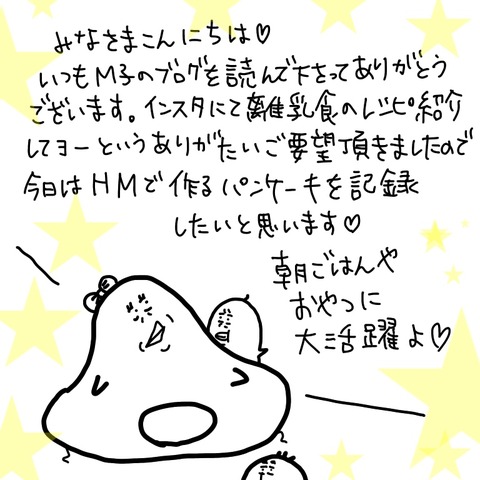 みなさまこんにちは♡
いつもM子のブログを読んで下さってありがとう
ございます。インスタにて離乳食のレシピ紹介
してヨーというありがたいご要望頂きましたので
今日はHMで作るパンケーキを記録
したいと思います♡
朝ごはんや
おやつに
大活躍よ♡